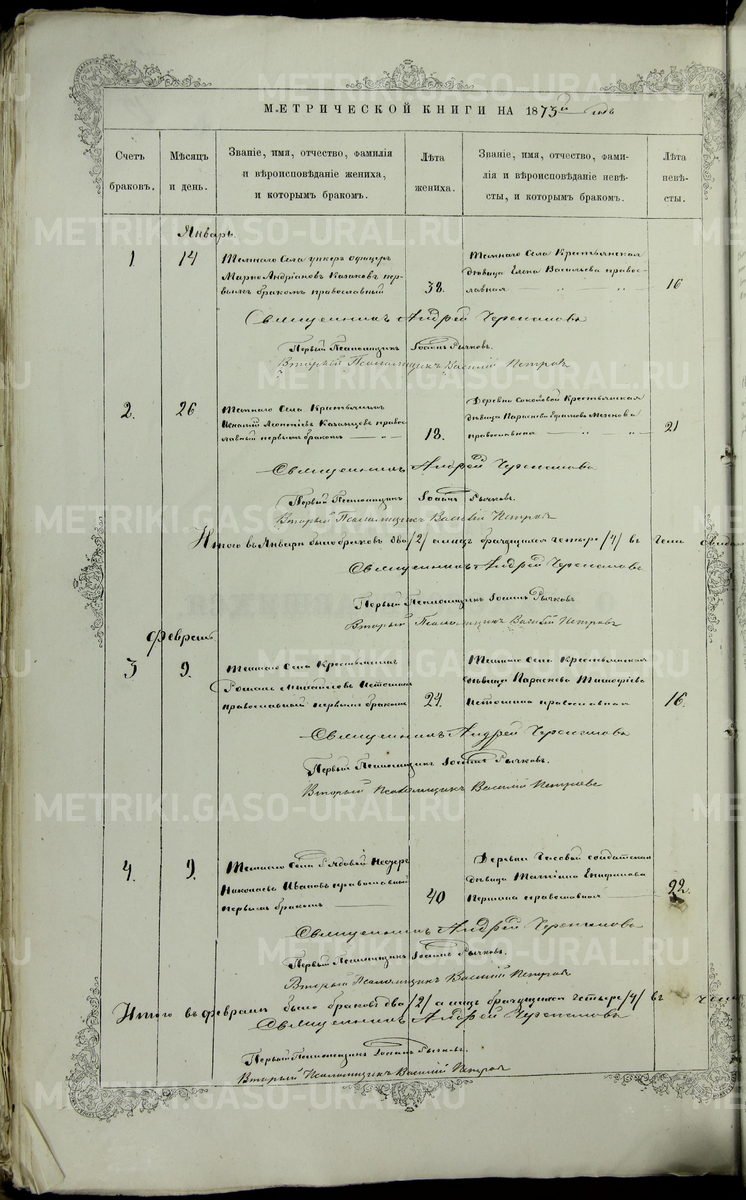 МЕТРИЧЕСКОЙ КНИГИ НА 1873й годъ
Счетъ браковъ.
Мѣсяцъ и день.
Званіе, имя, отчество, фамилія
и вѣроисповѣданіе жениха,
и которымъ бракомъ.
Лѣта
жениха.
Званіе, имя, отчество, фами-
лія и вѣроисповѣданіе невѣ-
сты, и которымъ бракомъ.
Лѣта
невѣ-
сты.
Январь.
1 14
Села унтеръ офицеръ
Андріановъ Казаковъ пер-
вымъ бракомъ православный
38.
Села Крестьянская
дѣвица Елена Васильева правос-
лавная
16
Священникъ Андрей Черепановъ
Первый Псаломщикъ Іоаннъ Рычковъ.
Второй Псаломщикъ Василій Петровъ
2. 26
Села Крестьянинъ
Леонтіевъ правос-
лавный первымъ бракомъ
18.
Деревни Крестьянская
дѣвица Параскева
православная
21
Священникъ Андрей Черепановъ
Первый Псаломщикъ Іоаннъ Рычковъ.
Второй Псаломщикъ Василій Петровъ
Итого въ Январѣ было браковъ два /2/ а лицъ брачущихся четыре /4/ въ чемъ
Священникъ Андрей Черепановъ
Первый Псаломщикъ Іоаннъ Рычковъ
Второй Псаломщикъ Василій Петровъ
Февраль
3 9.
Села Крестьянинъ
Романъ Михайловъ Истоминъ
православный первымъ бракомъ
24.
Села Крестьянская
дѣвица Параскева Тимофѣева
православная
16.
Священникъ Андрей Черепановъ
Первый Псаломщикъ Іоаннъ Рычковъ.
Второй Псаломщикъ Василій Петровъ
4. 9.
Села Рядовой
Николаевъ Ивановъ православный
первымъ бракомъ
40
Деревни солдатская
дѣвица Татіана
православная
22.
Священникъ Андрей Черепановъ
Первый Псаломщикъ Іоаннъ Рычковъ.
Второй Псаломщикъ Василій Петровъ
Итого въ Февралѣ было браковъ два /2/ а лицъ брачущихся четыре /4/ въ
Священникъ Андрей Черепановъ
Первый Псаломщикъ Іоаннъ Рычковъ.
Второй Псаломщикъ Василій Петровъ
METRIKI.GASO-URAL.RU